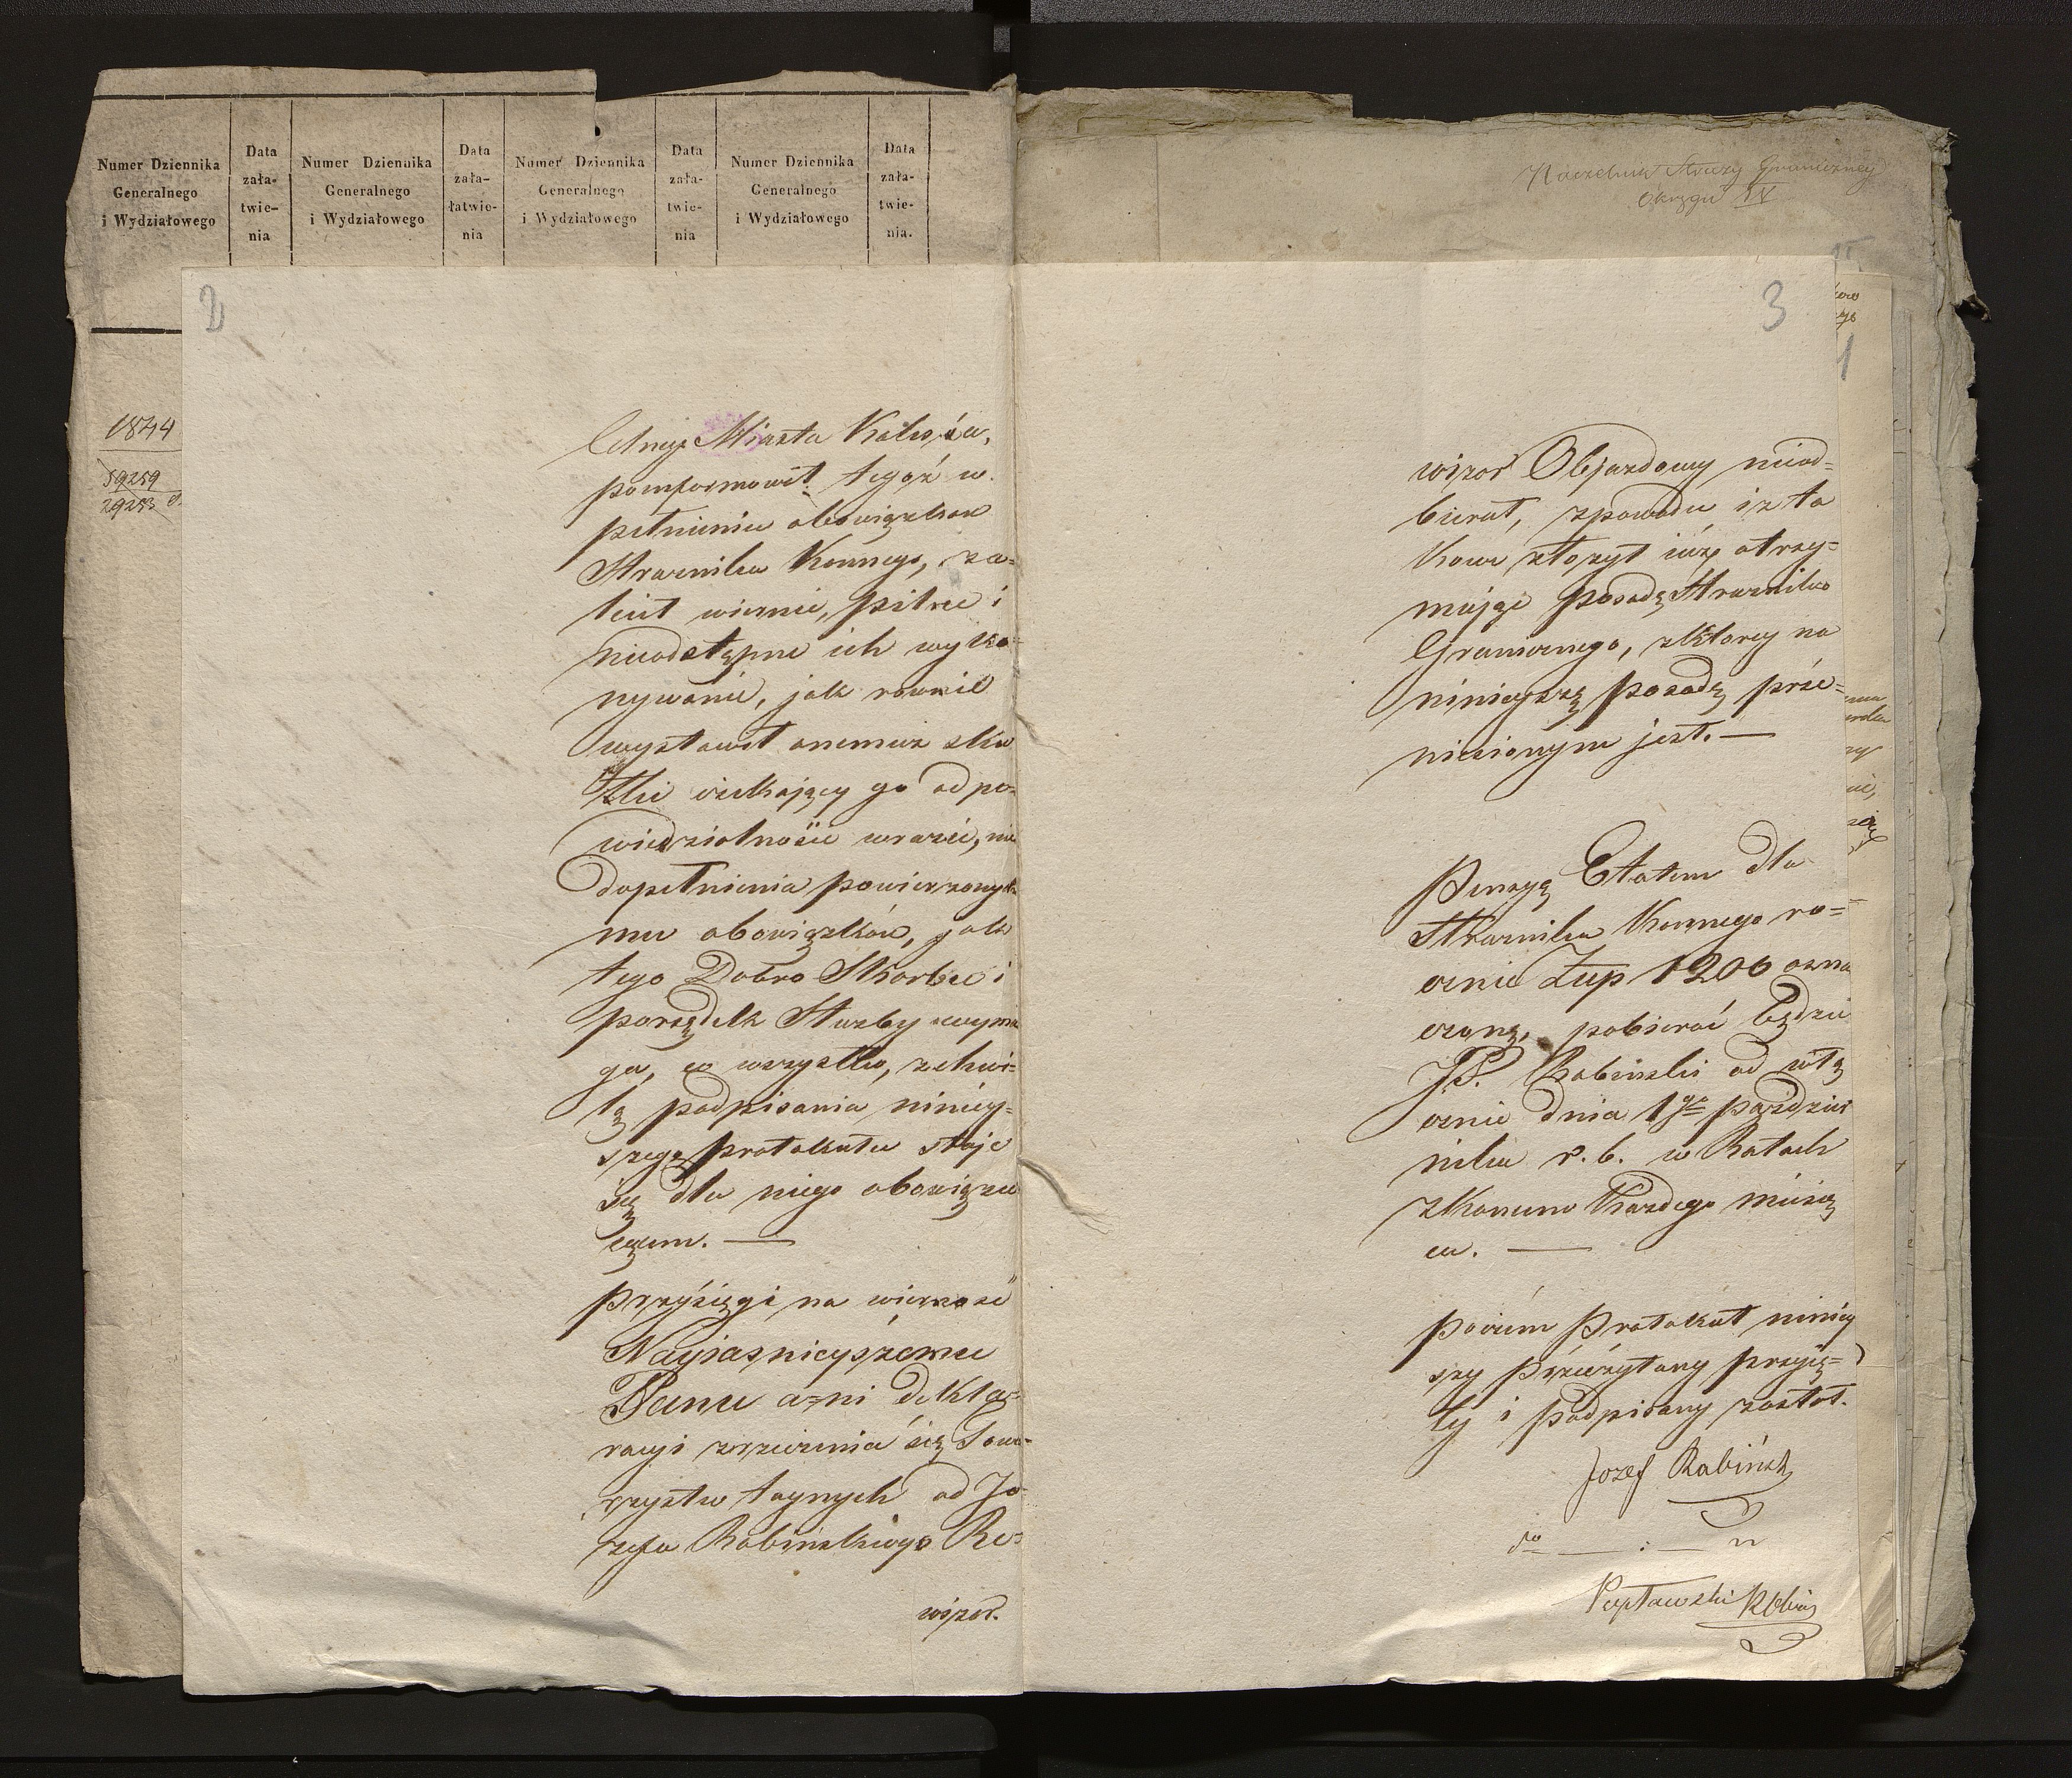 Numer Dziennika
Generalnego
i Wydziałowego
Data
zała-
twie-
nia
Numer Dziennika
Generalnego
i Wydziałowego
Data
zała-
łatwie-
nia
Numer Dziennika
Generalnego
i Wydziałowego
Data
zała-
twie-
nia
Numer Dziennika
Generalnego
i Wydziałowego
Data
zała-
twie-
nia.
1844
59259
29253
2
Miasta Kalisza,
poinformował tegoż w
pełnieniu obowiązkow
Straznika Konnego, za-
lecił wiernie, pilne i
nieodstępne ich wyko-
nywanie, jak rownie
wystawił onemuż sku
tki czekający go odpo-
wiedzialnośii wrazie, nie
dopełnienia powierzonych
mu obowiązków, jak
tego Dobro Skarbu i
porządek Służby wyma
ga, co wszystko, z chwi-
lą podpisania niniey-
szego Protokułu staje
się dla niego obowiązu
iącem. —
Przysięgi na wiernosć
Nayjasnieyszému
Panu a-ni Dekla-
racyi zrzeczenia się Towa-
rzystw taynych od Jo-
zefa Rabińskiego Re-
wizor.
Naczelnik Straży Graniczney
Okręgu IV
3
1
wizor Objazdowy nieod-
bierał, zpowodu iz ta
kowe złożył iuż, otrzy-
mając posadę Straznika
Granicznego, z ktorey na
ninieyszą posadę prze-
niesionym jest. —
Pensyą Etatem dla
Straznika Konnego ro-
cznie Złp 1200 ozna
czoną, pobierać będzie
JP. Rabinski od włą
cznie dnia 1go Paździer
nika r. b. w Ratach
z Koncem Każdego miesią
ca. —
Poczem Protokuł niniey
szy przeczytany przyię-
ty i podpisany został.
Jozef Rabińsk